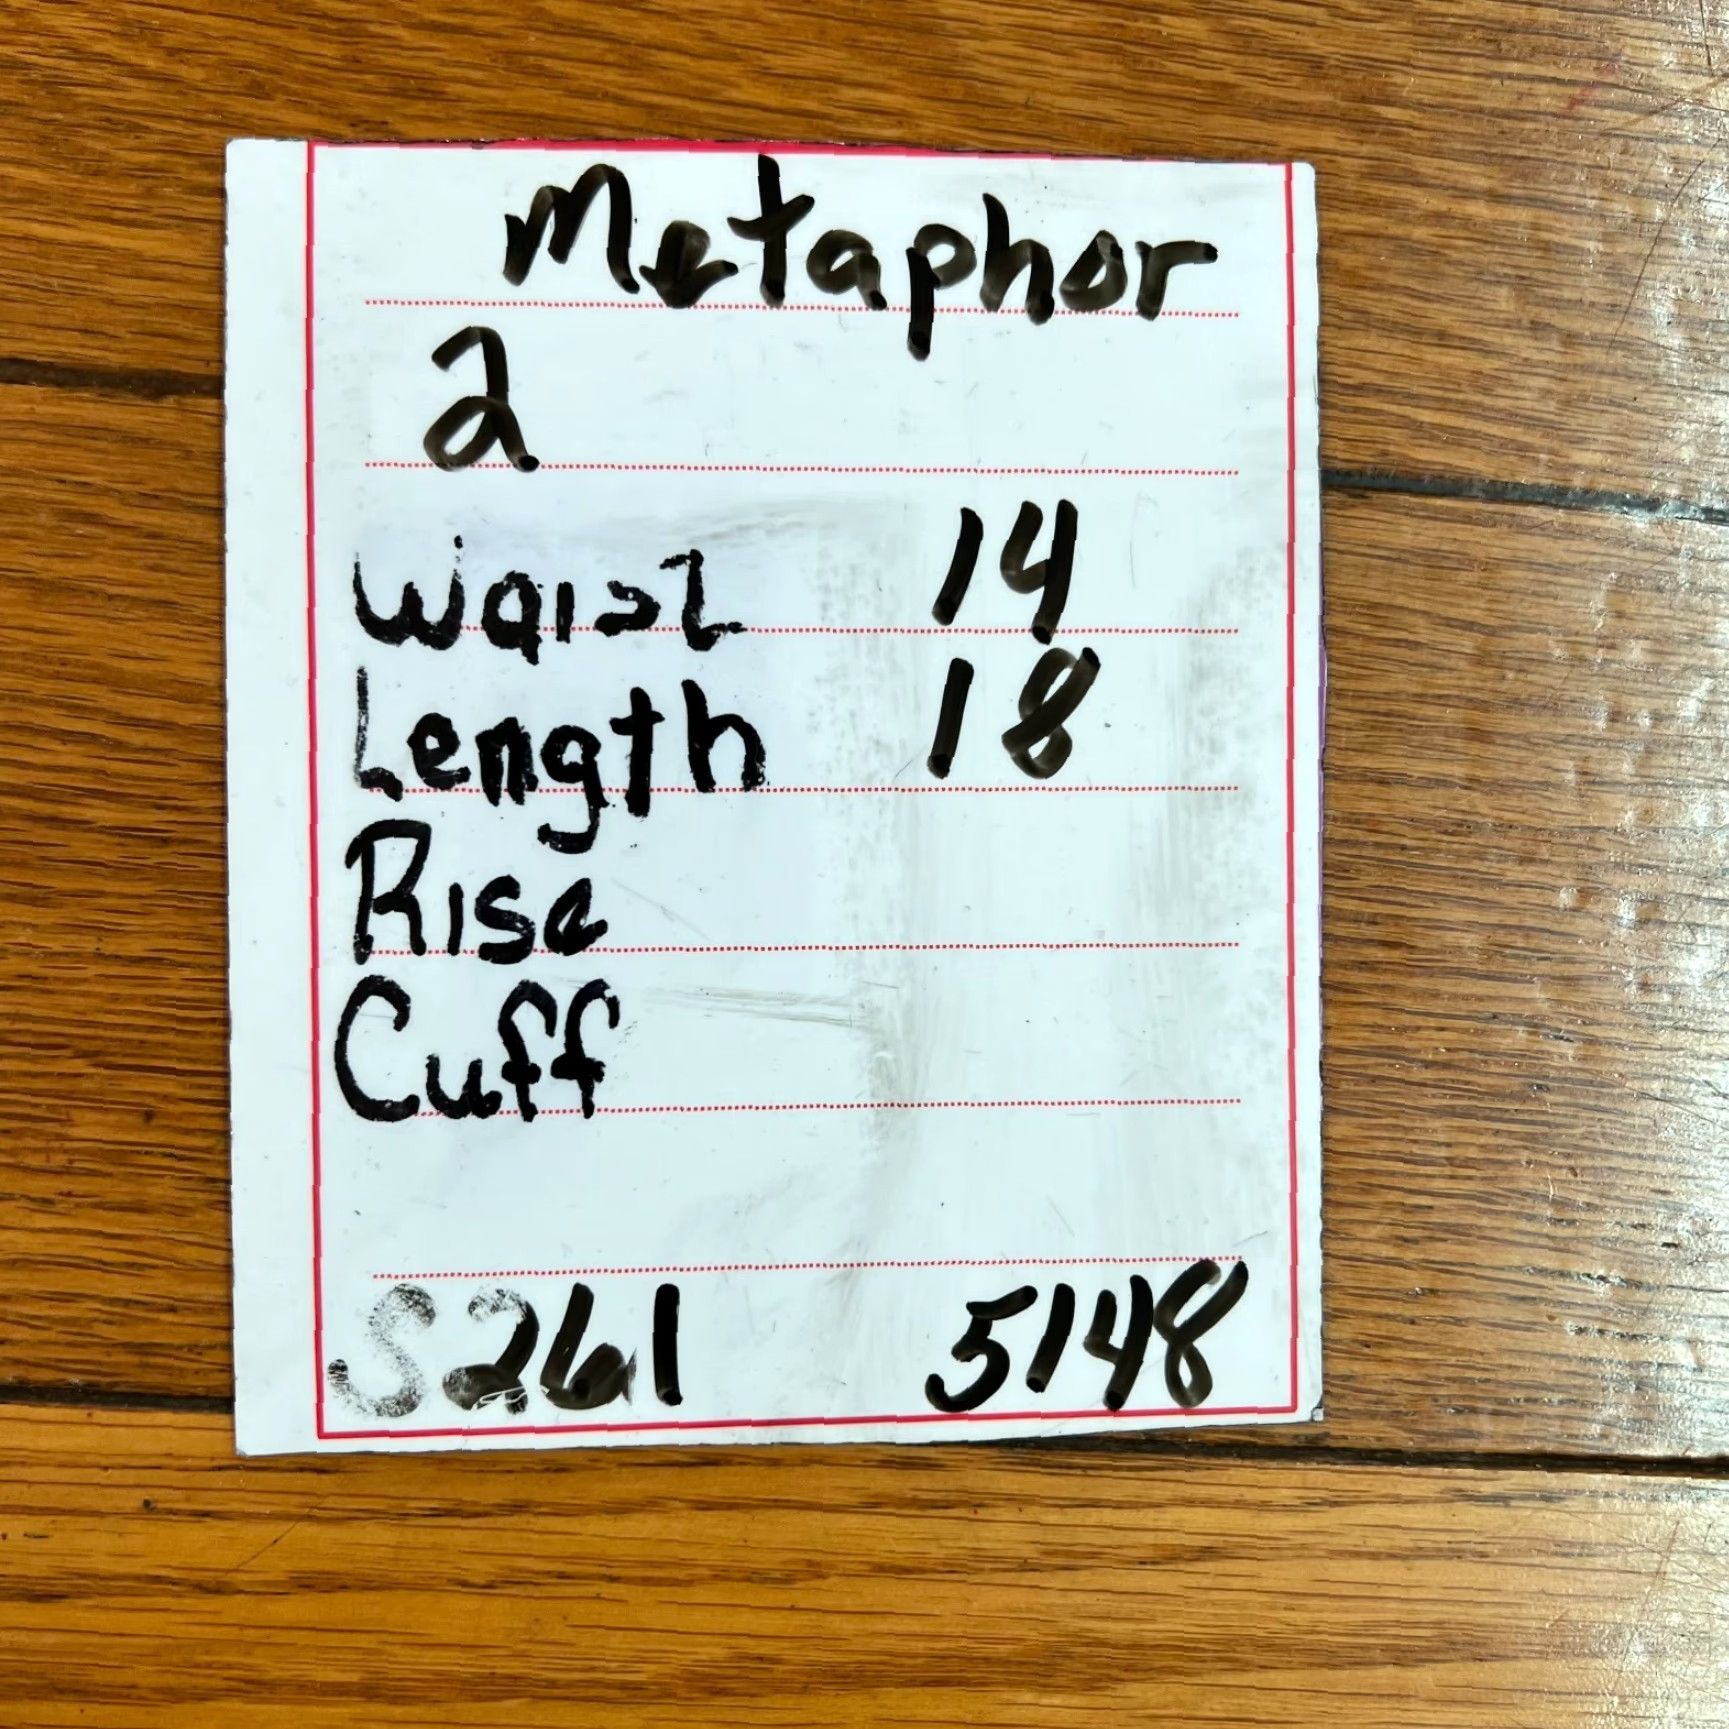 Metaphor
2
Waist 14
Length 18
Rise
Cuff
S261 5148